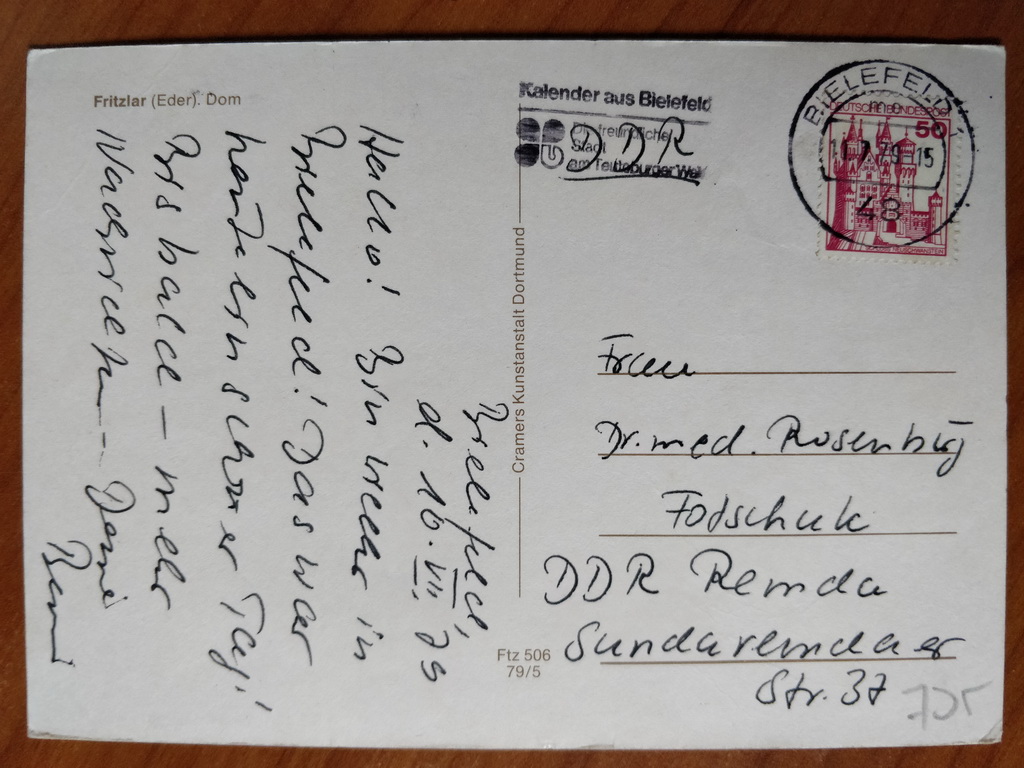 Fritzlar (Eder). Dom
Bielefeld,
d. 16. VII. 79
Hallo! Bin wieder in
Bielefeld! Das war
heute ein schöner Tag!
Bis bald - mehr
Wiedersehen - Deine
Kalender aus Bielefeld
Die freundliche
Stadt
am Teutoburger Wald
DDR
BIELEFELD
15
48
DEUTSCHE BUNDESPOST
50
Cramers Kunstanstalt Dortmund
Frau
Dr. med. Rosenburg
DDR Remda
Sundaremdaer
Str. 37
Ftz 506
79/5
725